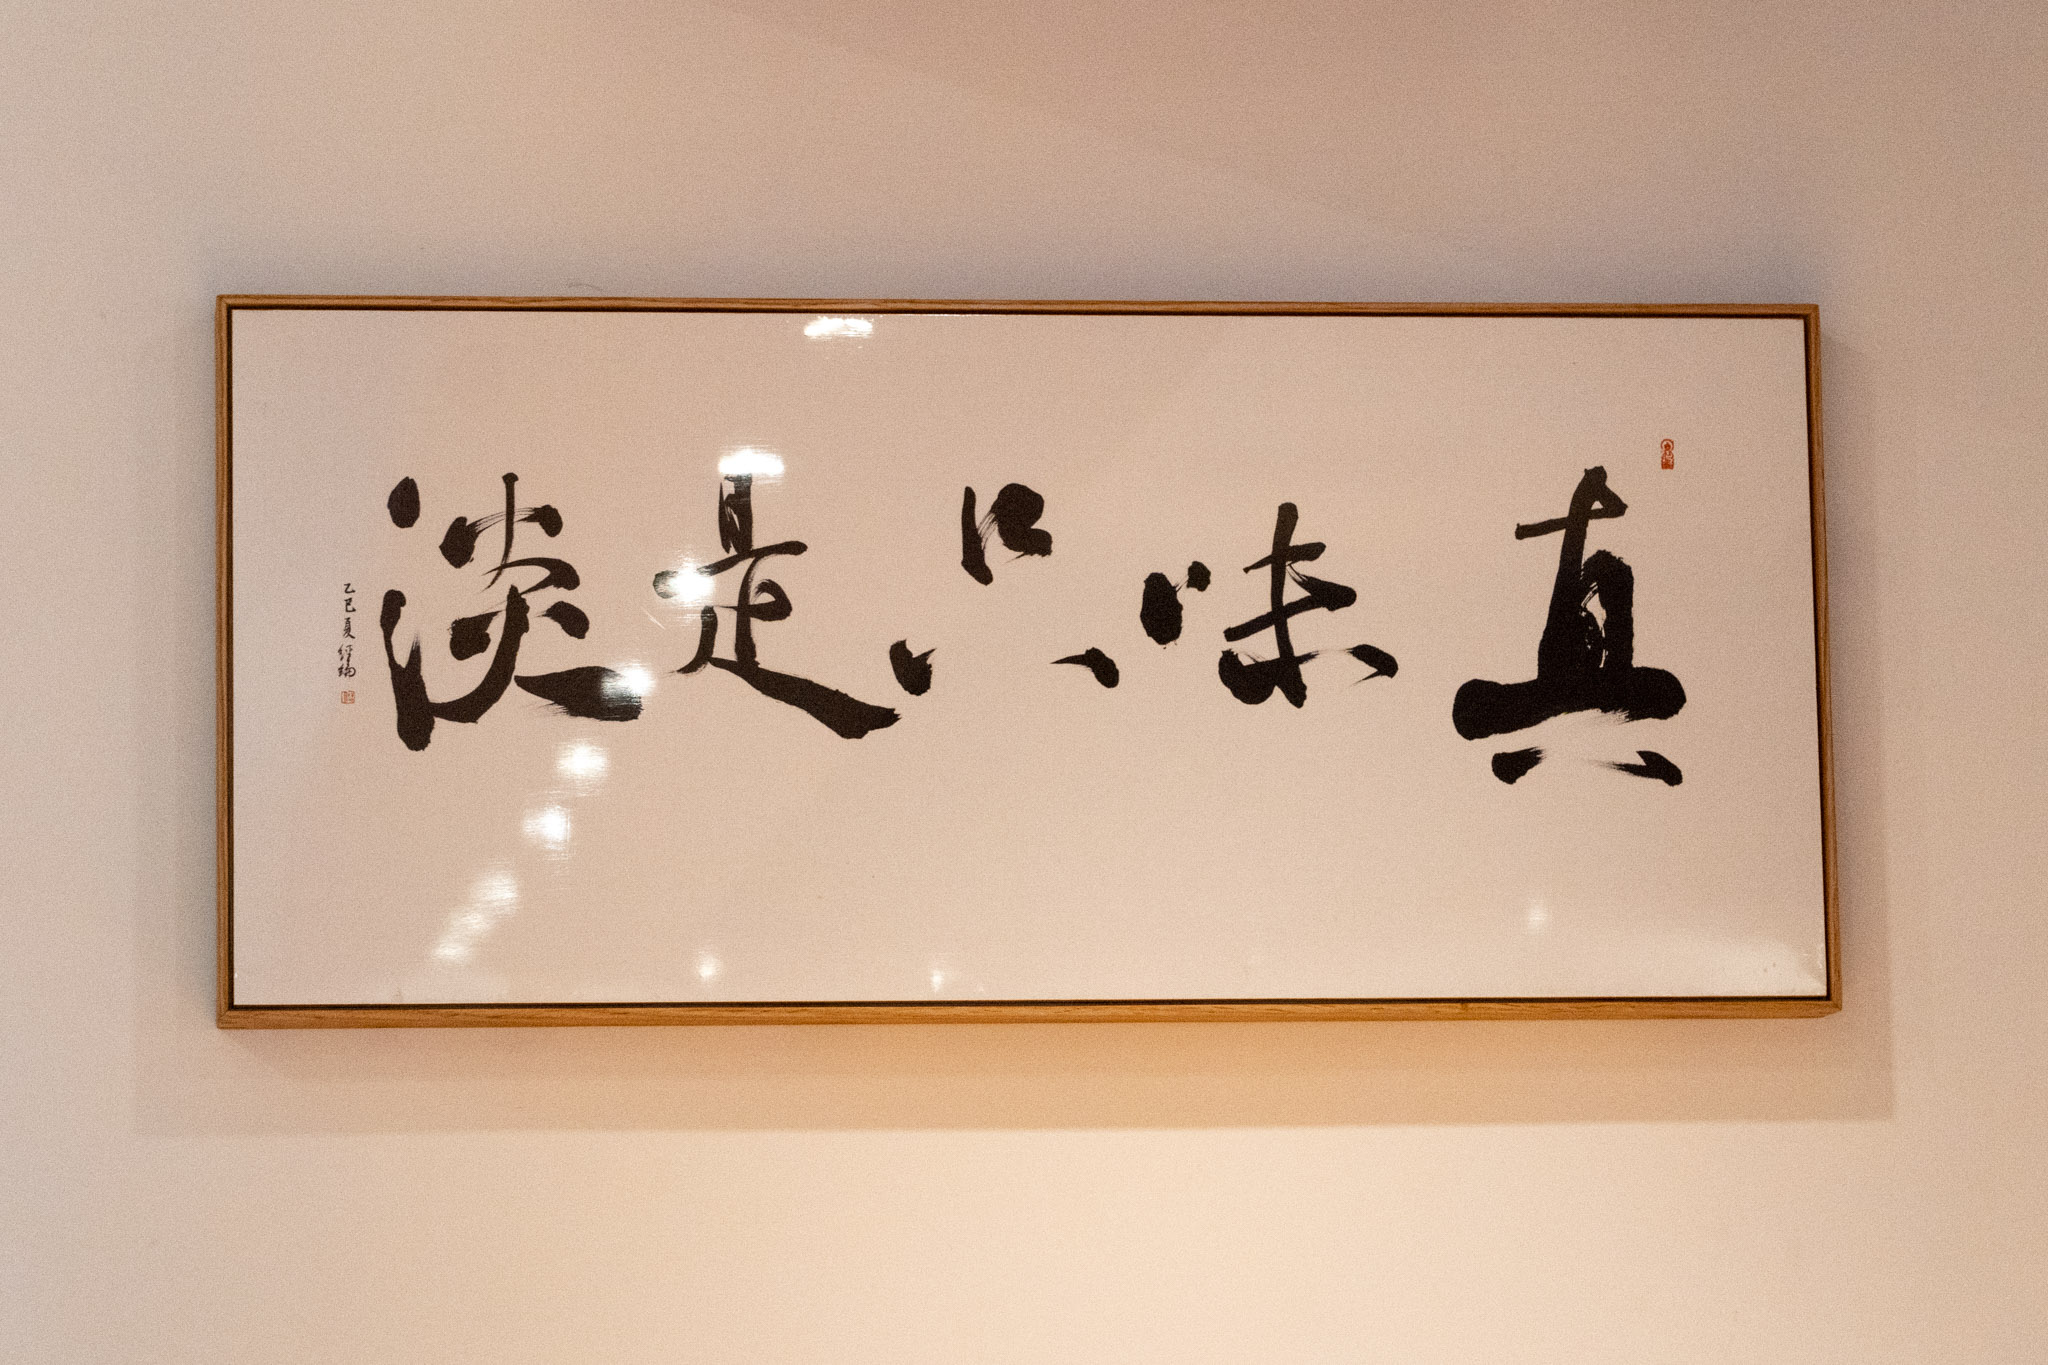 真味只是淡
乙巳夏